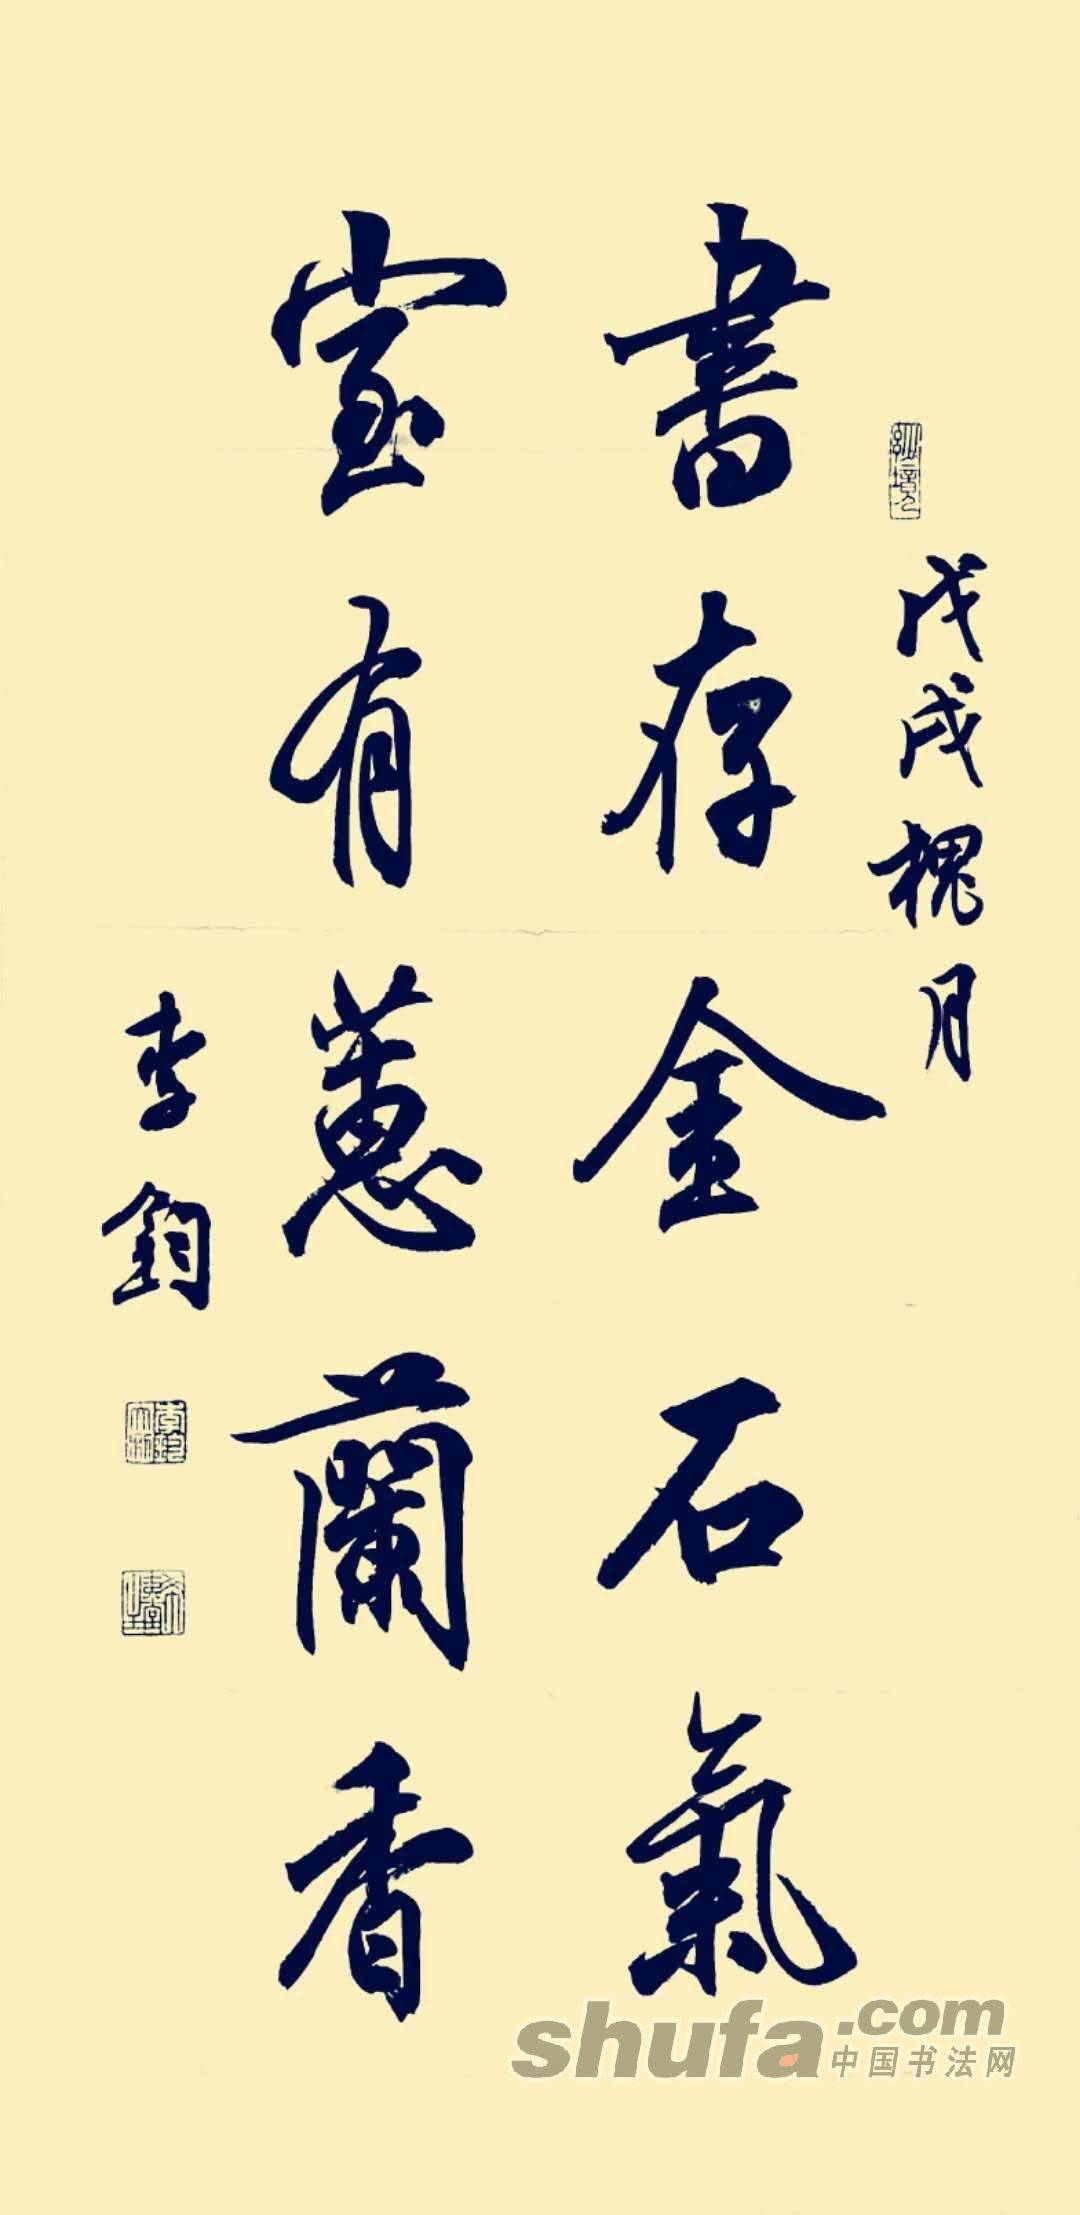 戊戌槐月
書存金石氣
室有蕙蘭香
李鈞
shufa.com
中国书法网